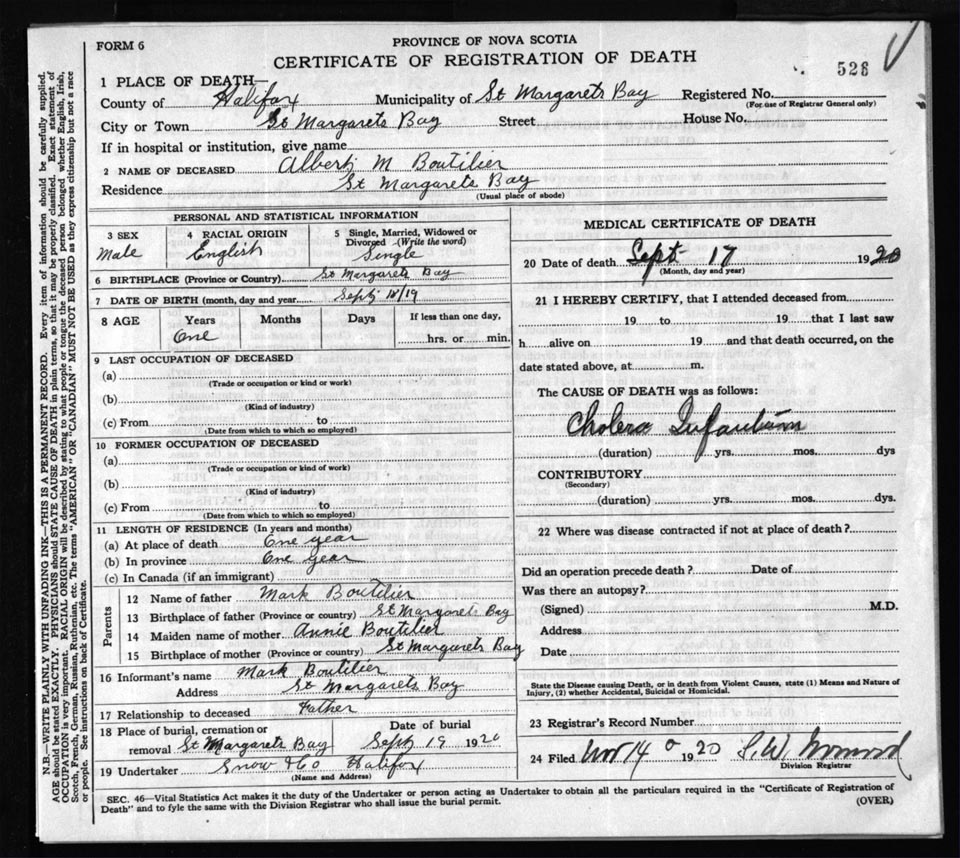 FORM 6
PROVINCE OF NOVA SCOTIA
CERTIFICATE OF REGISTRATION OF DEATH
528
1 PLACE OF DEATH—
County of Halifax Municipality of St Margarets Bay Registered No.
(For use of Registrar General only)
City or Town St Margarets Bay Street House No.
If in hospital or institution, give name
2 NAME OF DECEASED Albert M Boutilier
Residence St Margarets Bay
(Usual place of abode)
PERSONAL AND STATISTICAL INFORMATION
3 SEX 4 RACIAL ORIGIN 5 Single, Married, Widowed or Divorced (Write the word)
Male English Single
6 BIRTHPLACE (Province or Country) St Margarets Bay
7 DATE OF BIRTH (month, day and year) Sept 18/19
8 AGE Years Months Days If less than one day,
One hrs. or min.
9 LAST OCCUPATION OF DECEASED
(a)
(Trade or occupation or kind or work)
(b)
(Kind of industry)
(c) From to
(Date from which to which so employed)
10 FORMER OCCUPATION OF DECEASED
(a)
(Trade or occupation or kind of work)
(b)
(Kind of industry)
(c) From to
(Date from which to which so employed)
11 LENGTH OF RESIDENCE (In years and months)
(a) At place of death One year
(b) In province One year
(c) In Canada (if an immigrant)
Parents
12 Name of father Mark Boutilier
13 Birthplace of father (Province or country) St Margarets Bay
14 Maiden name of mother Annie Boutilier
15 Birthplace of mother (Province or country) St Margarets Bay
16 Informant's name Mark Boutilier
Address St Margarets Bay
17 Relationship to deceased Father
18 Place of burial, cremation or removal St Margarets Bay Date of burial Sept 19 1920
19 Undertaker Snow & Co Halifax
(Name and Address)
MEDICAL CERTIFICATE OF DEATH
20 Date of death Sept 17 1920
(Month, day and year)
21 I HEREBY CERTIFY, that I attended deceased from
19 to 19 that I last saw
h alive on 19 and that death occurred, on the
date stated above, at m.
The CAUSE OF DEATH was as follows:
Cholera Infantum
(duration) yrs. mos. dys
CONTRIBUTORY
(Secondary)
(duration) yrs. mos. dys.
22 Where was disease contracted if not at place of death?
Did an operation precede death? Date of
Was there an autopsy?
(Signed) M.D.
Address
Date
State the Disease causing Death, or in death from Violent Causes, state (1) Means and Nature of
Injury, (2) whether Accidental, Suicidal or Homicidal.
23 Registrar's Record Number
24 Filed Nov 14 1920 S. W.
Division Registrar
SEC. 46—Vital Statistics Act makes it the duty of the Undertaker or person acting as Undertaker to obtain all the particulars required in the "Certificate of Registration of
Death" and to fyle the same with the Division Registrar who shall issue the burial permit.
(OVER)
N.B.—WRITE PLAINLY, WITH UNFADING INK—THIS IS A PERMANENT RECORD. Every item of information should be carefully supplied.
AGE should be stated EXACTLY. PHYSICIANS should STATE CAUSE OF DEATH in plain terms, so that it may be properly classified. Exact statement of
OCCUPATION is very important. RACIAL ORIGIN will be described by stating to what people or tongue the deceased person belonged whether English, Irish,
Scotch, French, German, Russian, Ruthenian, etc. The terms "AMERICAN" OR "CANADIAN" MUST NOT BE USED as they express citizenship but not a race
or people. See instructions on back of Certificate.